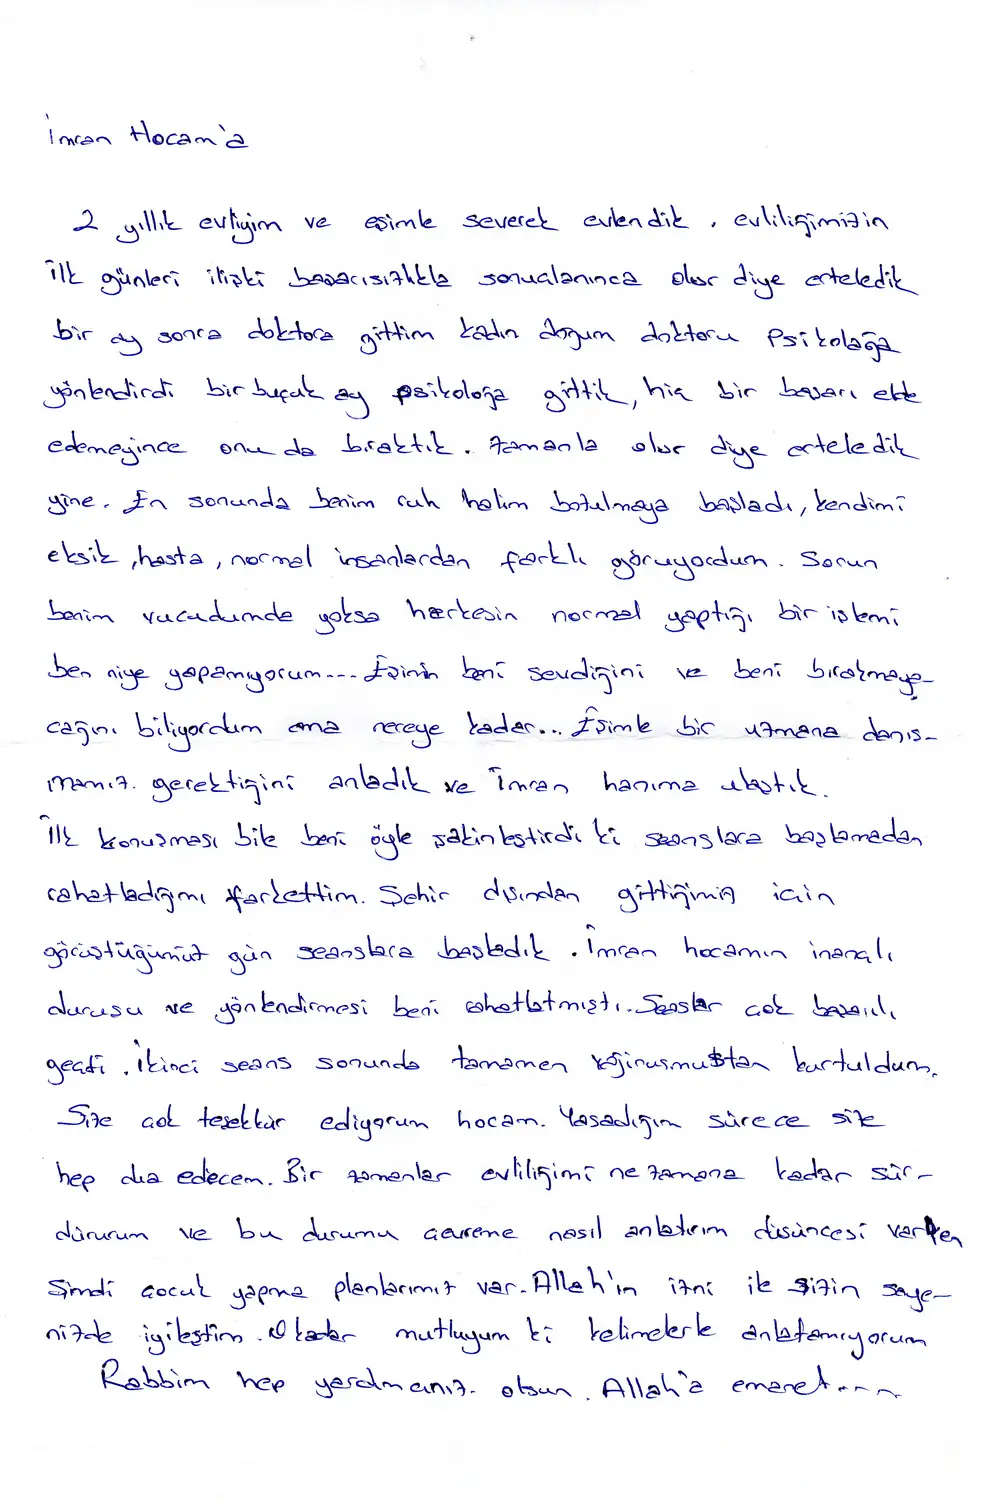 İmran Hocam'a
2 yıllık evliyim ve eşimle severek evlendik. evliliğimizin
ilk günleri ilişki başarısızlıkla sonuçlanınca olur diye erteledik
bir ay sonra doktora gittim kadın doğum doktoru Psikoloğa
yönlendirdi bir buçuk ay psikoloğa gittik, hiç bir başarı elde
edemeyince onu da bıraktık. zamanla olur diye erteledik
yine. En sonunda benim ruh halim bozulmaya başladı, kendimi
eksik, hasta, normal insanlardan farklı görüyordum. Sorun
benim vucudumda yoksa herkesin normal yaptığı bir işlemi
ben niye yapamıyorum... Eşimin beni sevdiğini ve beni bırakmaya-
cağını biliyordum ama nereye kadar... Eşimle bir uzmana danış-
mamız gerektiğini anladık ve İmran hanıma ulaştık.
İlk konuşması bile beni öyle sakinleştirdi ki seanslara başlamadan
rahatladığımı farkettim. Şehir dışından gittiğimiz için
görüştüğümüz gün seanslara başladık. İmran hocamın inançlı
duruşu ve yönlendirmesi beni rahatlatmıştı. Seaslar çok başarılı
geçti. İkinci seans sonunda tamamen vajinusmustan kurtuldum.
Size çok teşekkür ediyorum hocam. Yaşadığım sürece size
hep dua edecem. Bir zamanlar evliliğimi ne zamana kadar sür-
dürürüm ve bu durumu çevreme nasıl anlatırım düşüncesi varken
Şimdi çocuk yapma planlarımız var. Allah'ın izni ile sizin saye-
nizde iyileştim. O kadar mutluyum ki kelimelerle anlatamıyorum
Rabbim hep yardımcınız olsun. Allah'a emanet....